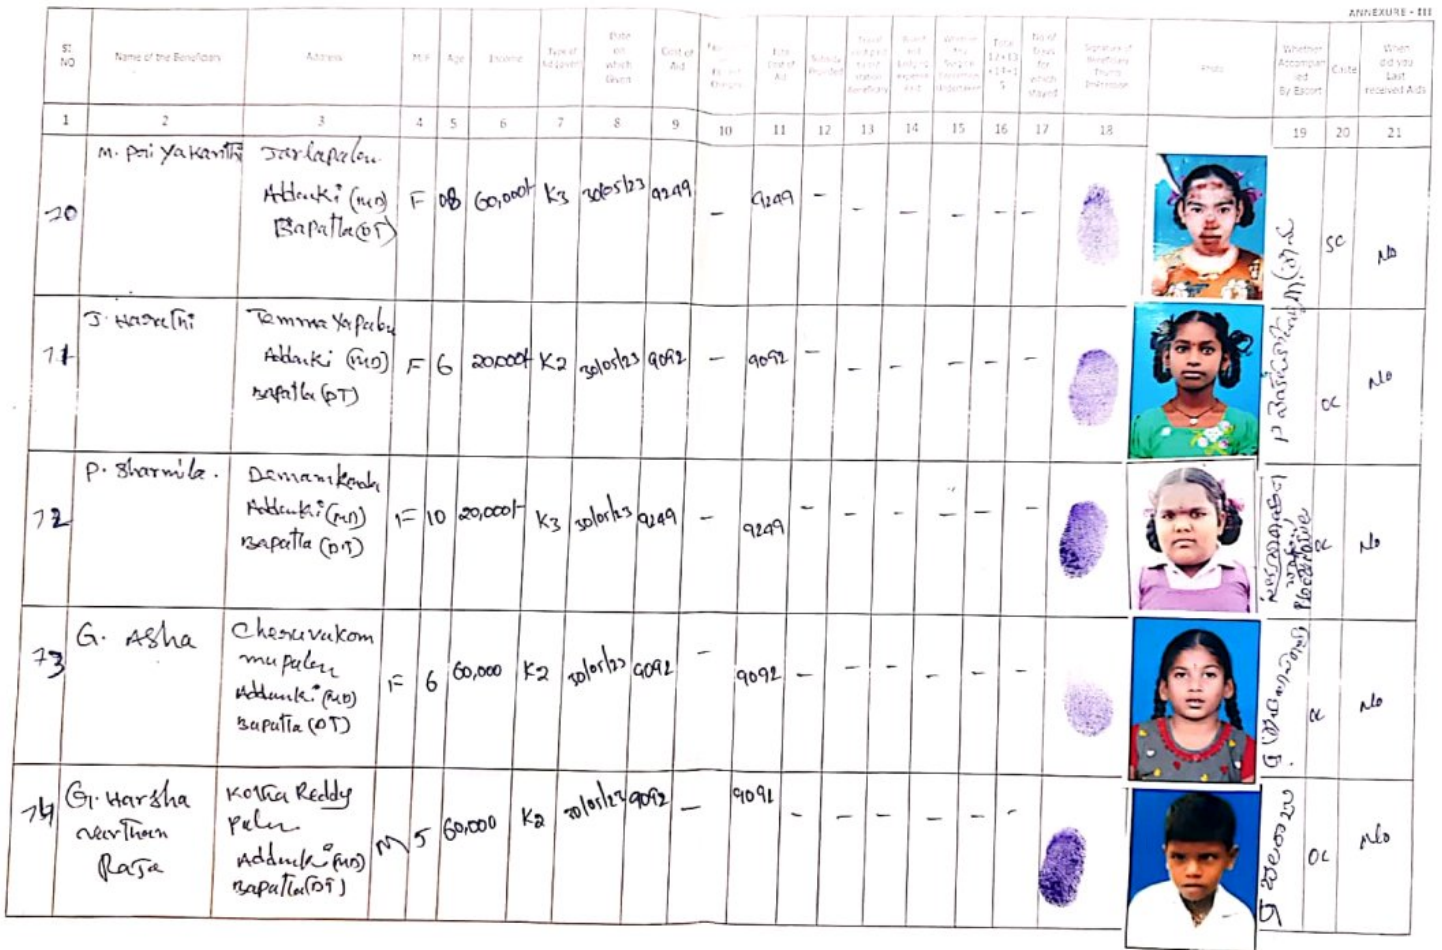 ANNEXURE - III
Sl NO Name of the Beneficiary Address M/F Age Income Type of Aid (given) Date on which Given Cost of Aid Total Cost of Aid Subsidy Provided Total 12+13+14+15 No of days for which stayed Signature of Beneficiary Thump Impression Photo Whether Accompanied By Escort Caste When did you Last received Aids
1 2 3 4 5 6 7 8 9 10 11 12 13 14 15 16 17 18 19 20 21
70 M. Priyakanthi Jarlapalem
Addanki (MD) F 08 60,000/- K3 30/05/23 9249 - 9249 - - - - - - SC No
Bapatla (DT)
71 J. Harathi
Addanki (MD) F 6 20,000/- K2 30/05/23 9092 - 9092 - - - - - - OC No
Bapatla (DT)
72 P. Sharmila.
Addanki (MD) F 10 20,000/- K3 30/05/23 9249 - 9249 - - - - - OC No
Bapatla (DT)
73 G. Asha Cheruvukom
mupalem
Addanki (MD) F 6 60,000 K2 30/05/23 9092 - 9092 - - - - - - OC No
Bapatla (DT)
74 G. Harsha Kotha Reddy
Vardhan Palem
Raja Addanki (MD) M 5 60,000 K2 30/05/23 9092 - 9092 - - - - - - OC No
Bapatla (DT)